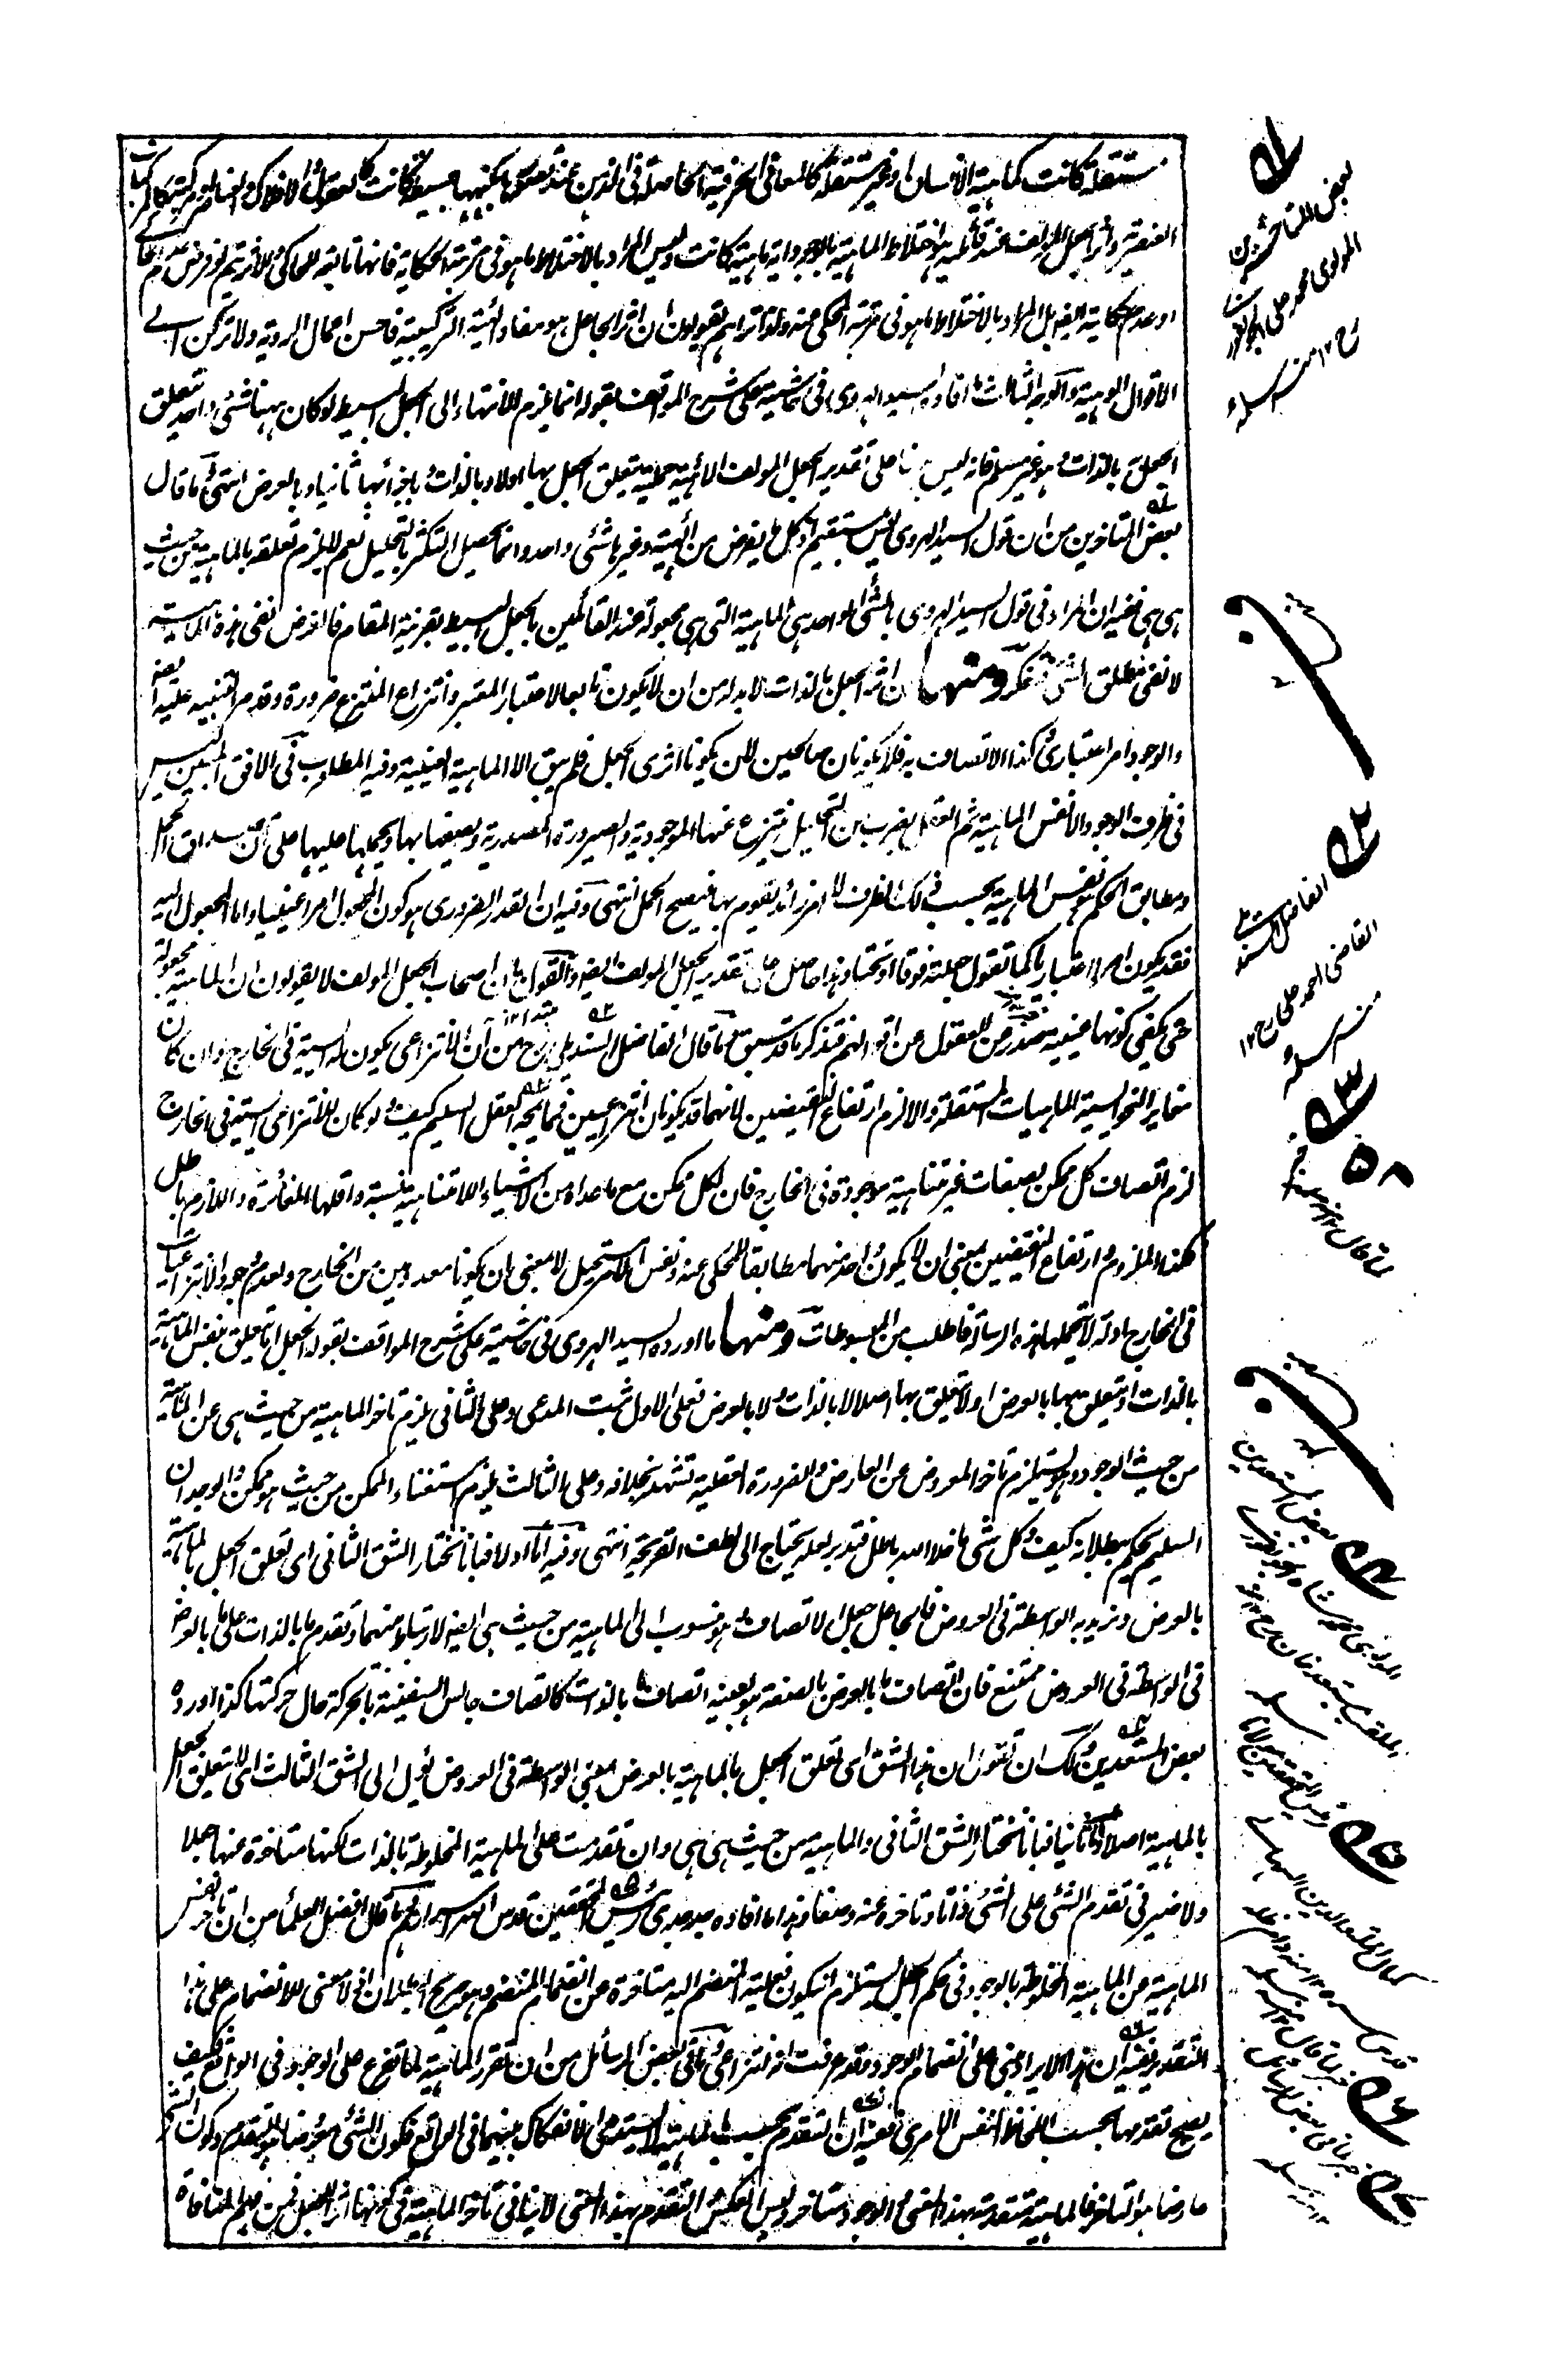 مستقلة كانت كماهية الانسان او غير مستقلة كالمعانى الحرفية الحاصلة فى الذهن عند تصورها بكنهها بسيطة كانت كالعقول والافلاك والعناصر او مركبة كالمركبات
العنصرية واثر الجعل المؤلف عند قائليه هو اختلاط الماهية بالوجود اية ماهية كانت وليس المراد بالاختلاط ما هو فى مرتبة الحكاية فانها تابعة للحاكى والاثر يتم لو فرض عدم الحاكى
او عدم الحكاية ايضا بل المراد بالاختلاط ما هو فى مرتبة المحكى عنه ولذا تراهم يقولون ان اثر الجاعل هو مفاد الهيئة التركيبية فاحسن اعمال الروية ولا تركن الى
الاقوال الوهمية والوجه الثالث ما افاده السيد الهروى فى حاشيته على شرح المواقف بقوله انما يلزم الانتهاء الى الجعل البسيط لو كان ههنا شئ واحد يتعلق
الجعل به بالذات وهو غير مسلم فانه ليس ههنا على تقدير الجعل المؤلف الا هيئة حملية يتعلق الجعل بها اولا وبالذات وباجزائها ثانيا وبالعرض انتهى وما قال
بعض المتاخرين من ان قول السيد الهروى ليس بمستقيم اذ كل ما يفرض من الهيئة وغيرها شئ واحد وانما يحصل التكثر بالتحليل نعم لا يلزم تعلقه بالماهية من حيث
هى هى ففيه ان المراد فى قول السيد الهروى بالشئ الواحد هى الماهية التى هى مجعولة عند القائلين بالجعل البسيط بقرينة المقام فالغرض نفى هذه الماهية
لا نفى مطلق الشئ فتفكر ومنها ان اثر الجعل بالذات لا بد له من ان لا يكون تابعا لاعتبار المعتبر وانتزاع المنتزع ضرورة وقد مر التنبيه عليه ايضا
والوجود امر اعتبارى وكذا الاتصاف به فلا يكونان صالحين لان يكونا اثرى الجعل فلم يبق الا الماهية العينية وفيه المطلوب فى الافق المبين ليس
فى ظرف الوجود الا نفس الماهية ثم العقل بضرب من التحليل ينتزع عنها الموجودية والصيرورة المصدرية ويصفها بها ويحملها عليها على ان مصداق الحمل
ومطابق الحكم هو نفس الماهية بحسب ذلك الظرف لا امر زائد يقوم بها فيصح الحمل انتهى وفيه ان القدر الضرورى هو كون المجعول امرا عينيا واما المجعول اليه
فقد يكون امرا اعتباريا كما تقول جعلته فوقا او تحتا وهذا حاصل على تقدير الجعل المؤلف ايضا والقول بان اصحاب الجعل المؤلف لا يقولون ان الماهية مجعولة
حتى يكفى كونها عينية عن اقوالهم فتذكر ما قد سبق وما قال الفاضل السنديلى رح من ان الانتزاعى يكون له ايسية فى الخارج وان كان
مغايرا لنحو ايسية الماهيات المستقلة والا لزم ارتفاع النقيضين لانهما قد يكونان انتزاعيين فمما يمجه العقل السليم كيف ولو كان للانتزاعى ايسية فى الخارج
لزم اتصاف كل ممكن بصفات غير متناهية موجودة فى الخارج فان لكل ممكن مع ما عداه من الاشياء اللامتناهية نسبة واقلها المغائرة واللازم باطل
فكذا الملزوم وارتفاع النقيضين بمعنى ان لا يكون واحد منهما مطابقا للمحكى عنه ونفس الامر مستحيل لا بمعنى ان يكونا معدومين من الخارج ولعدم وجود الانتزاعيات
فى الخارج ادلة لا تحملها هذه الرسالة فاطلب من المبسوطات ومنها ما اورده السيد الهروى فى حاشيته على شرح المواقف بقوله الجعل اما يتعلق بنفس الماهية
بالذات او يتعلق بها بالعرض او لا يتعلق بها اصلا لا بالذات ولا بالعرض فعلى الاول ثبت المدعى وعلى الثانى يلزم تاخر الماهية من حيث هى عن الماهية
من حيث الوجود وهو يستلزم تاخر المعروض عن العارض والضرورة العقلية تشهد بخلافه وعلى الثالث يلزم استغناء الممكن من حيث هو ممكن والوجدان
السليم يحكم ببطلانه كيف وكل شئ ما خلا الله باطل فتدبر لعله يحتاج الى لطف القريحة انتهى وفيه اما اولا فبانا نختار الشق الثانى اى تعلق الجعل بالماهية
بالعرض ونريد به الواسطة فى العروض فالجاعل جعل الاتصاف وهو منسوب الى الماهية من حيث هى ايضا لارتباط منهما وتقدم ما بالذات على ما بالعرض
فى الواسطة فى العروض ممتنع فان اتصاف ما بالعرض بالصفة هو بعينه اتصاف ما بالذات كاتصاف جالس السفينة بالحركة حال حركتها كذا اورده
بعض المستعدين ولك ان تقول ان هذا الشق اى تعلق الجعل بالماهية بالعرض بمعنى الواسطة فى العروض يؤل الى الشق الثالث اى لا يتعلق الجعل
بالماهية اصلا واما ثانيا فبانا نختار الشق الثانى والماهية من حيث هى هى وان تقدمت على الماهية المخلوطة بالذات لكنها متاخرة عنها جعلا
ولا ضير فى تقدم الشئ على الشئ ذاتا وتاخره عنه وصفا وهذا ما افاده جد جدى رئيس المحققين قدس الله اسرارهم وما قال افضل العلماء من ان تاخر نفس
الماهية عن الماهية المخلوطة بالوجود فى حكم الجعل يستلزم ان يكون فعلية المنضم اليه متاخرة عن انضمام المنضم وهو صريح البطلان اذ لا معنى للانضمام على هذا
التقدير ففيه ان هذا الايراد مبنى على انضمام الوجود وقد عرفت انه انتزاعى وما فى بعض الرسائل من ان تقرر الماهية لما تفرع على الوجود فى الواقع فكيف
يصح تقدمها بحسب اللحاظ النفس الامرى ففيه ان التقدم بحسب الماهية لا يستدعى الانفكاك بينهما فى الواقع فكون الشئ معروضا هو التقدم وكون الشئ
عارضا هو التاخر فالماهية متقدمة بهذا المعنى والوجود متاخر وليس العكس والتقدم بهذا المعنى لا ينافى تاخر الماهية فى كونها اثر الجعل فمن عليه المنافاة
بعض المتاخرين
المولوى محمد على
رح ١٢ منه سلمه
الفاضل السنديلى
القاضى احمد على رح ١٢
منه سلمه
بعض المستعدين
رئيس المحققين مولانا